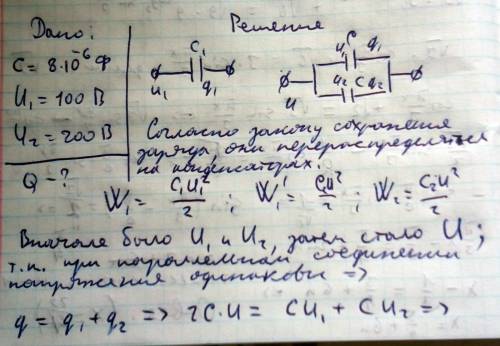 Дано: Решение
C = 8·10⁻⁶ Ф
U₁ = 100 В
U₂ = 200 В
Q - ?
C₁
U₁ q₁
C
U₁ q₁
U₂ C q₂
U
Согласно закону сохранения
заряда, они перераспределятся
на конденсаторах.
W₁ = C₁U₁²/2 ; W₁' = C₁U²/2 ; W₂ = C₂U²/2
Вначале было U₁ и U₂, затем стало U;
т.к. при параллельном соединении
напряжения одинаковы =>
q = q₁ + q₂ => 2C·U = CU₁ + CU₂ =>